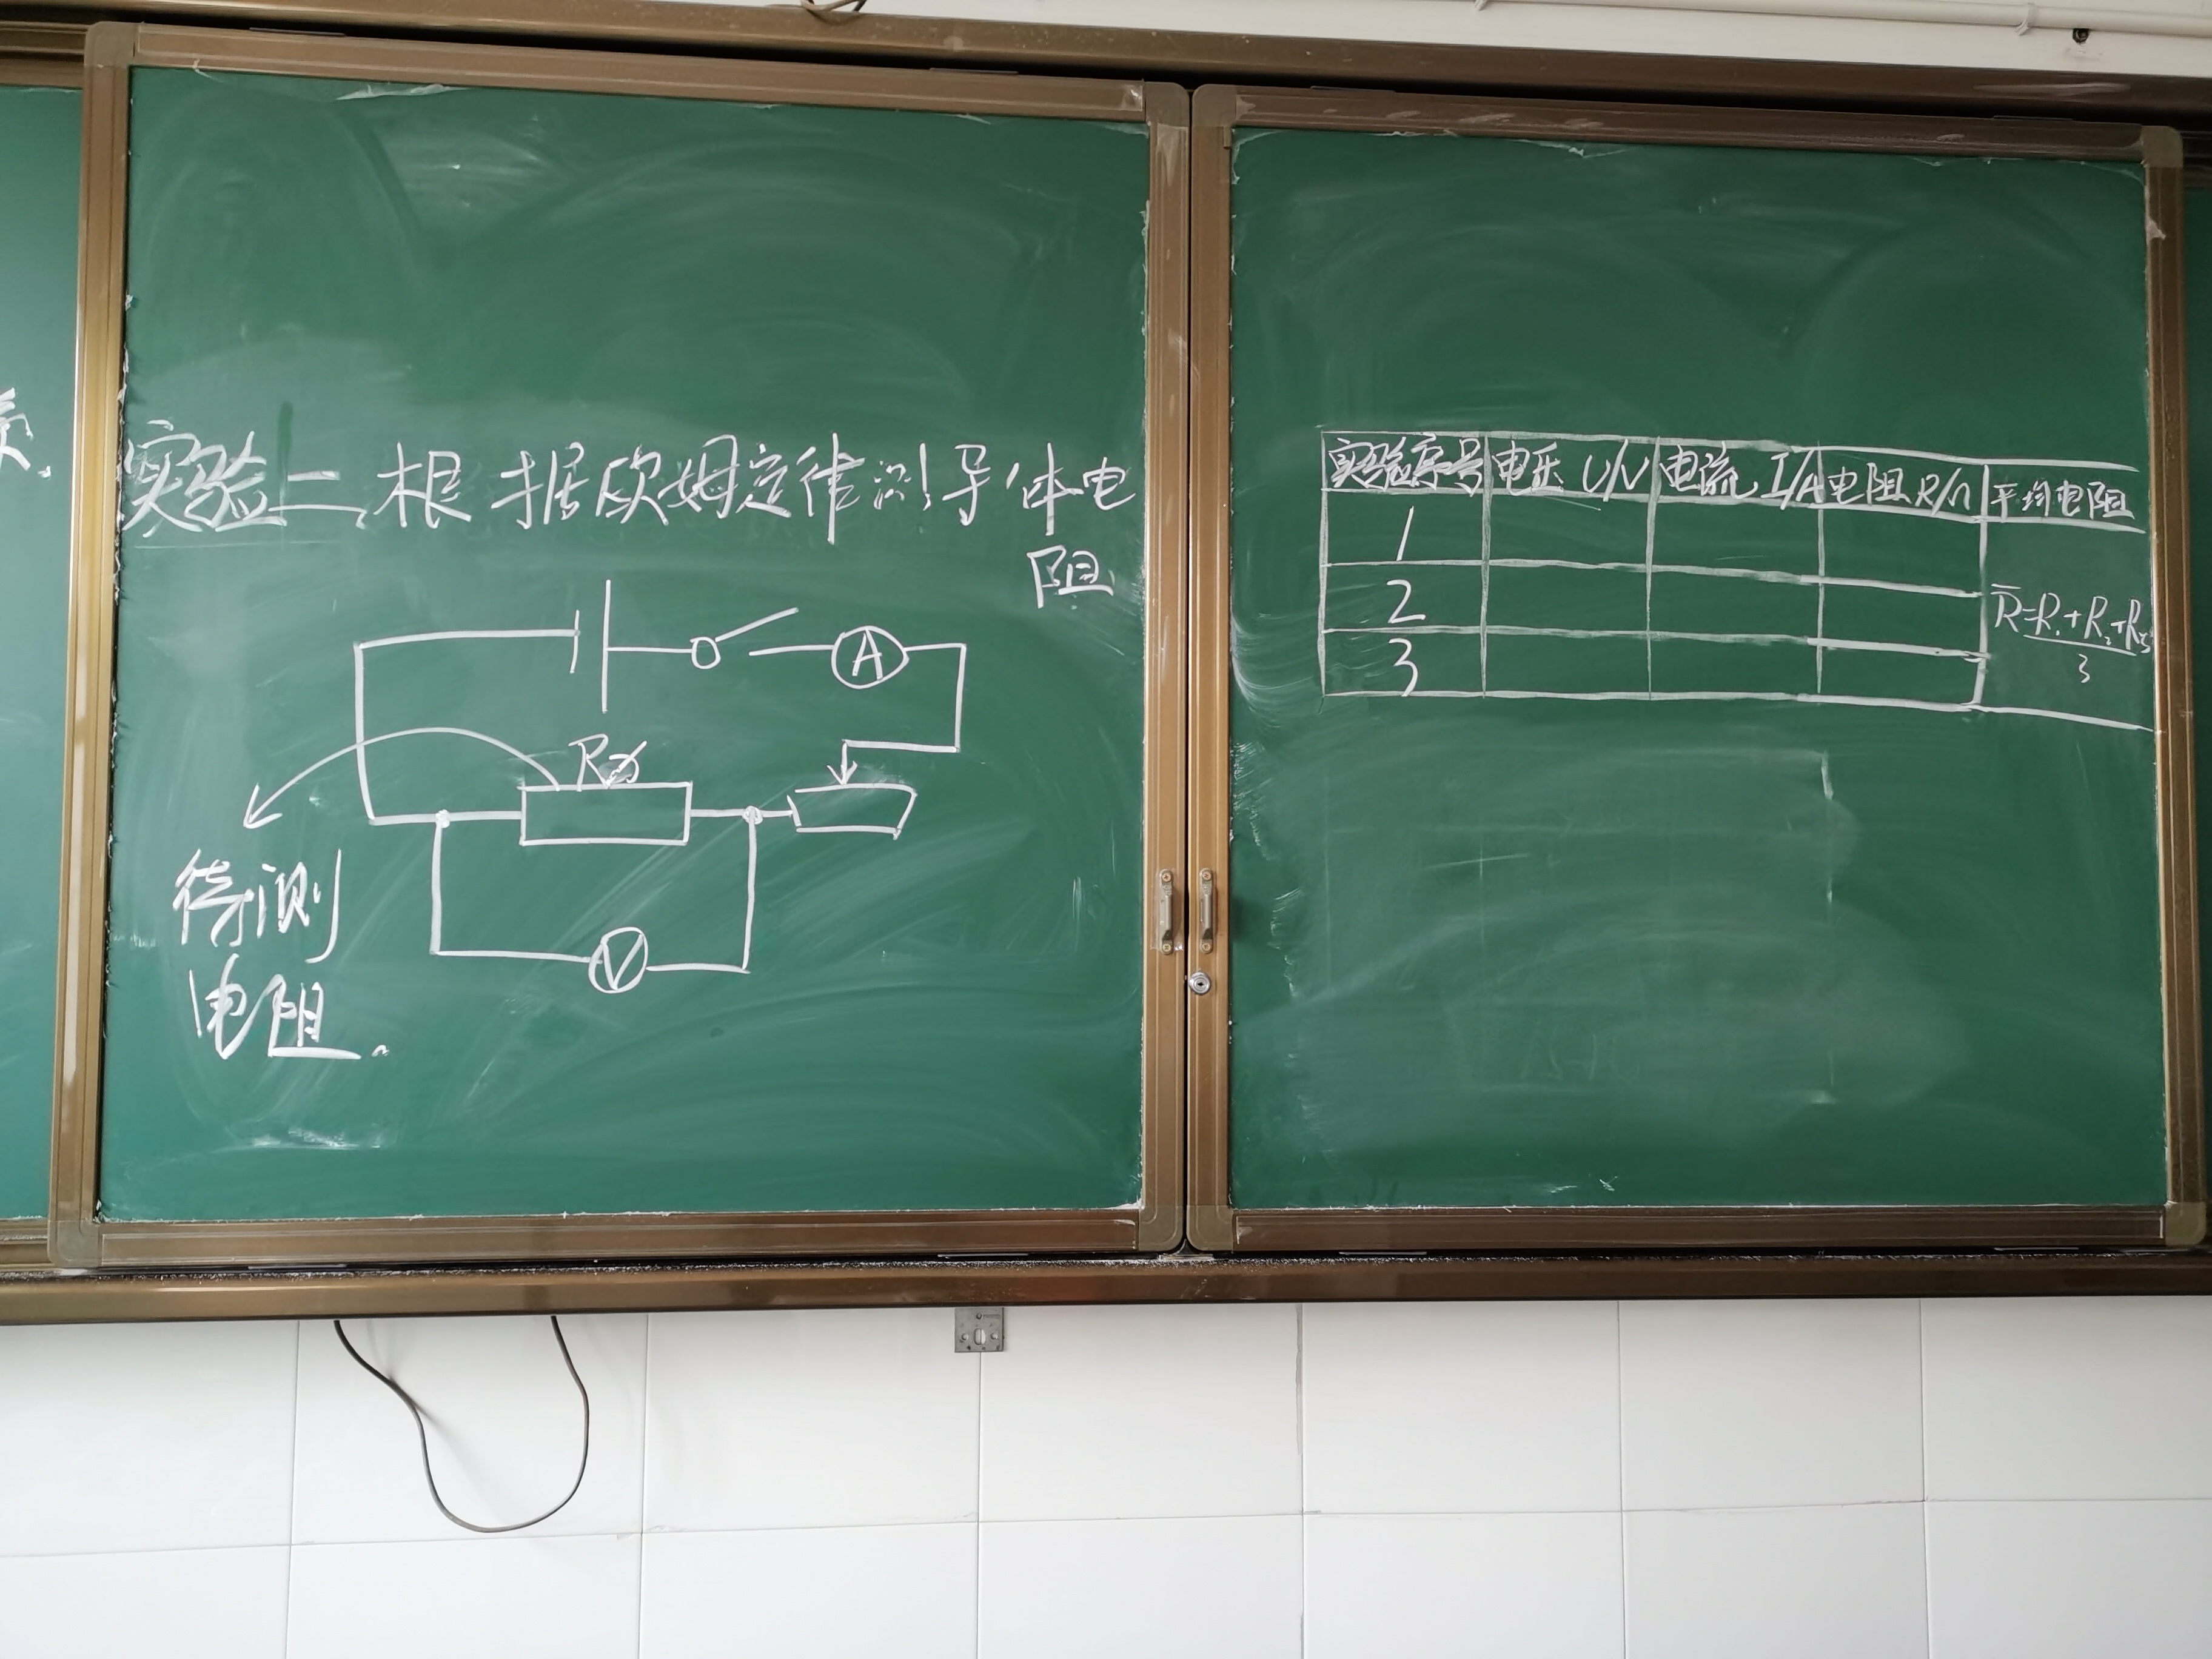 实验二、根据欧姆定律测导体电
阻
A
Rx
待测
电阻.
V
实验序号 电压 U/V 电流 I/A 电阻 R/Ω 平均电阻
1
2
3
R̄=R₁+R₂+R₃
3